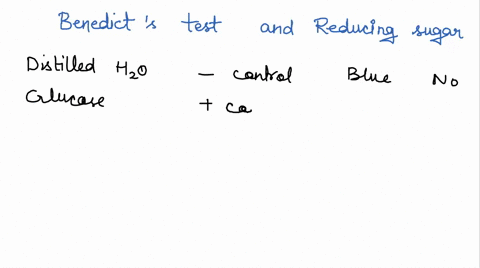 Benedict's test and Reducing sugar
Distilled H₂O – control Blue No
Glucose + co